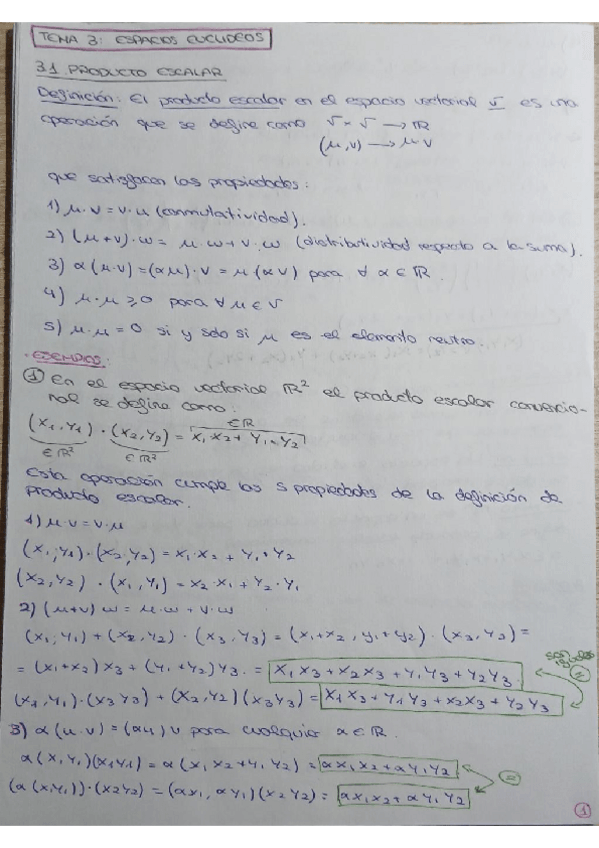 TEMA 3: ESPACIOS EUCLIDEOS
3.1 PRODUCTO ESCALAR
Definición: El producto escalar en el espacio vectorial V es una
operación que se define como V × V → ℝ
(μ,v) → μ v
que satisfacen las propiedades:
1) μ·v = v·μ (conmutatividad).
2) (μ+v)·w = μ·w + v·w (distributividad respecto a la suma).
3) α(μ·v) = (αμ)·v = μ(αv) para ∀ α ∈ ℝ
4) μ·μ ≥ 0 para ∀ μ ∈ V
5) μ·μ = 0 si y solo si μ es el elemento neutro.
·EJEMPLOS:
① En el espacio vectorial ℝ² el producto escalar convencio-
nal se define como:
∈ ℝ
(x₁,y₁) · (x₂,y₂) = x₁x₂ + y₁·y₂
∈ ℝ² ∈ ℝ²
Esta operación cumple las 5 propiedades de la definición de
producto escalar.
1) μ·v = v·μ
(x₁,y₁)·(x₂,y₂) = x₁·x₂ + y₁·y₂
(x₂,y₂)·(x₁,y₁) = x₂·x₁ + y₂·y₁
2) (μ+v) w = μ·w + v·w
(x₁,y₁) + (x₂,y₂) · (x₃,y₃) = (x₁+x₂, y₁+y₂) · (x₃,y₃) =
= (x₁+x₂)x₃ + (y₁+y₂)y₃ = x₁x₃ + x₂x₃ + y₁y₃ + y₂y₃
son iguales
=
(x₁,y₁)·(x₃y₃) + (x₂,y₂)(x₃y₃) = x₁x₃ + y₁y₃ + x₂x₃ + y₂y₃
3) α(μ·v) = (αμ)v para cualquier α ∈ ℝ.
α(x₁y₁)(x₁y₁) = α(x₁x₂+y₁y₂) = αx₁x₂ + αy₁y₂
=
(α(x₁y₁))·(x₂y₂) = (αx₁, αy₁)(x₂y₂) = αx₁x₂ + αy₁y₂
1